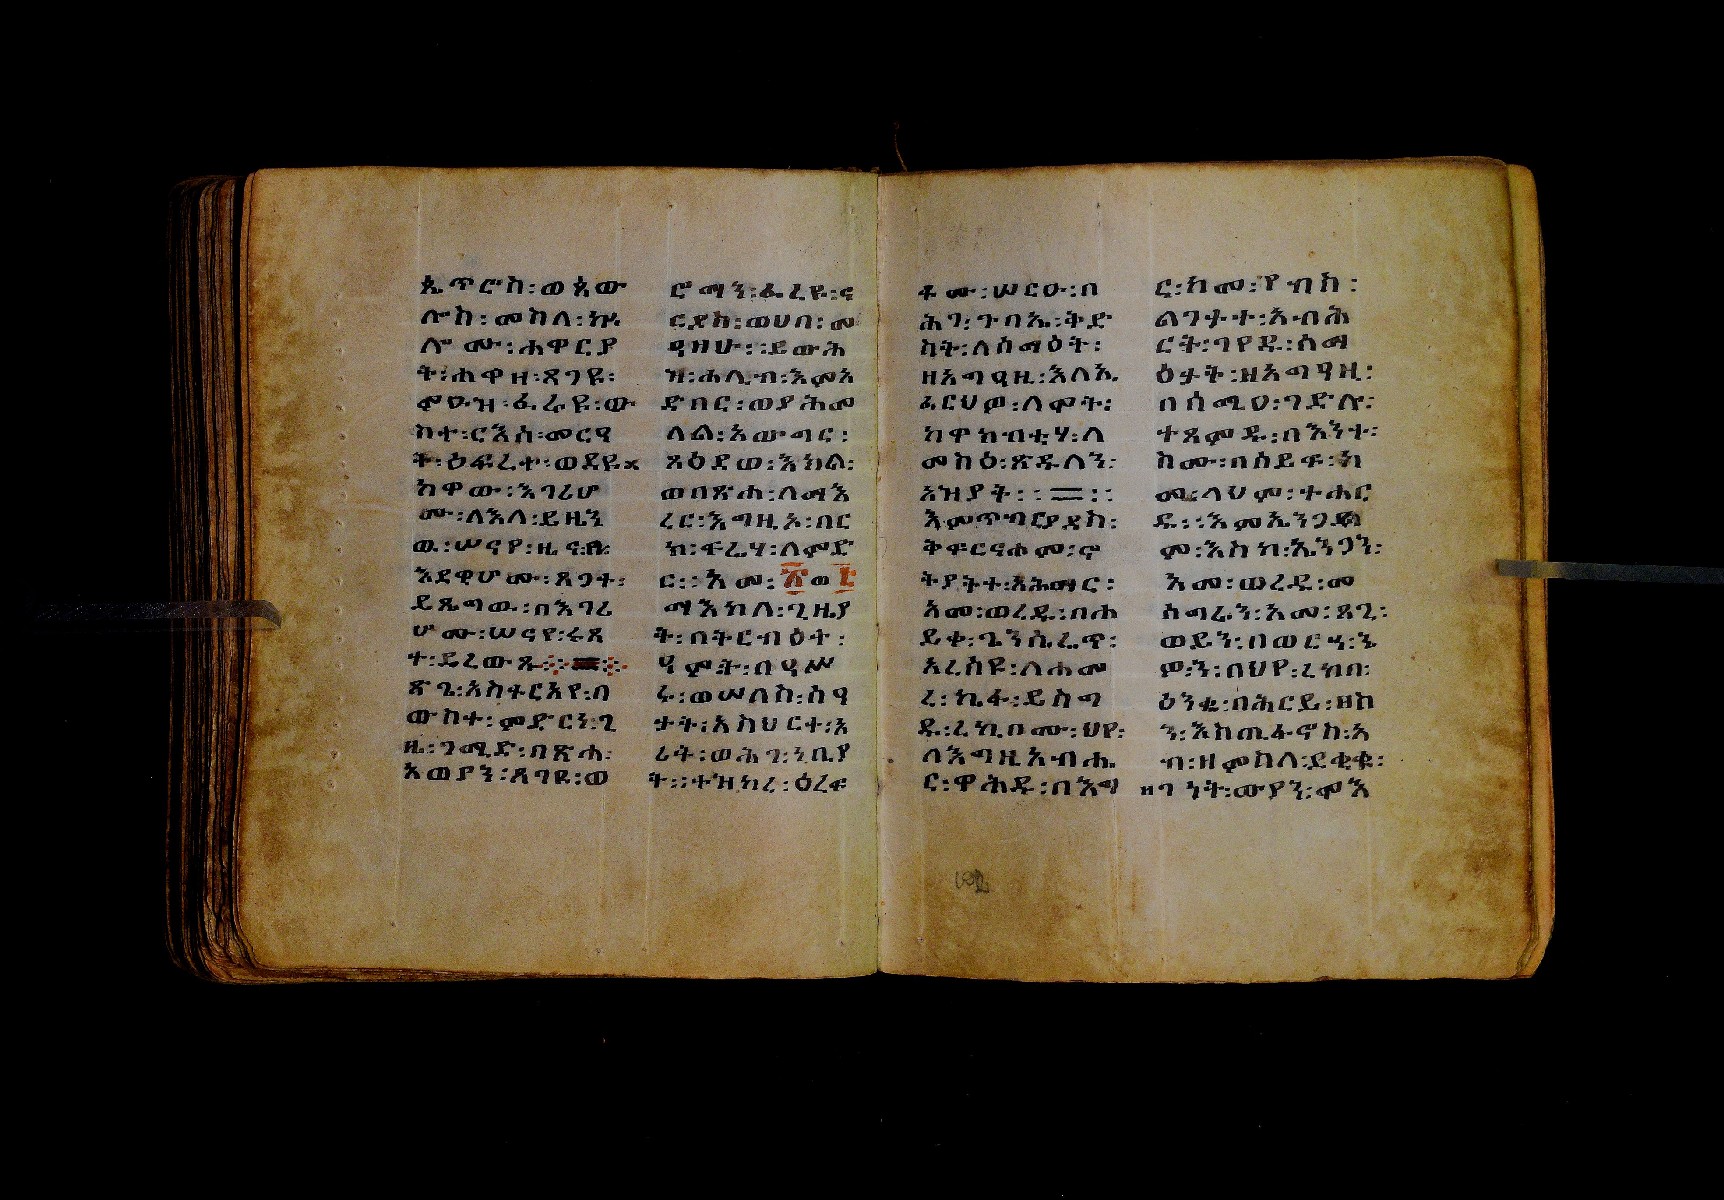 ጴጥሮስ፡ወጳው
ሎስ፡መከለ፡ኵ
ሎሙ፡ሐዋርያ
ት፡ሐዋዘ፡ጸገዩ፡
ሞዑዝ፡ፈራዩ፡ው
ስተ፡ርእስ፡መርዓ
ት፡ዕፍረተ፡ወደዩ፡
ከዋው፡እገሪሆ
ሙ፡ለእለ፡ይዜን
ዉ፡ሠናየ፡ዜና፡
አደዊሆሙ፡ጸገተ፡
ይጼግዉ፡በእገሪ
ሆሙ፡ሠናየ፡ሩጸ
ተ፡ይረውጹ፡
ጽጌ፡አስተርአየ፡በ
ውስተ፡ምድርነ፡ጊ
ዜ፡ገሚድ፡በጽሐ፡
አወያን፡ጸገዩ፡ወ
ሮማን፡ፈረዩ፡ና
ርዶስ፡ወሀበ፡መ
ዓዛሁ፡፡ይውሕ
ዝ፡ሐሊብ፡እምአ
ድበር፡ወያሕመ
ለል፡አውግር፡
ጸዕደወ፡እክል፡
ወበጽሐ፡ለማእ
ረር፡እግዚኦ፡በር
ከ፡ፍሬሃ፡ለምድ
ር፡፡አመ፡
ማእከለ፡ጊዜያ
ት፡በትርብዕት፡
ዓምት፡በዓሥ
ሩ፡ወሠለስ፡ሰዓ
ታት፡አስህርተ፡አ
ሪት፡ወሕገ፡ነቢያ
ት፡፡ተዝከረ፡ዕረፍ
ቶሙ፡ሠርዑ፡በ
ሕገ፡ጉባኤ፡ትድ
ከት፡ለሰማዕት፡
ዘአግዓዚ፡እለኢ
ፈርህዎ፡ለሞት፡
ከዋክብቲሃ፡ለ
መከዕ፡ጽዱላን፡
አዝያት፡፡፡፡
እመጥብርያዶስ፡
ቅፍርናሖም፡ኖ
ትያተተ፡አሕማር፡
አመ፡ወረዱ፡በሐ
ይቀ፡ጌንሴሬጥ፡
አረስዩ፡ለሐመ
ረ፡ኪፋ፡ይስግ
ዱ፡ረኪቦሙ፡ህየ፡
ለእግዚአብሔ
ር፡ዋሕዱ፡በእግ
ር፡ከመ፡የብስ፡
ልገታተ፡አብሕ
ርት፡ገየዱ፡ሰማ
ዕታት፡ዘአግዓዚ፡
በሰሚዐ፡ገድሉ፡
ተጸምዱ፡በእንተ፡
ስሙ፡በሰይፍ፡ከ
መ፡ላህም፡ተሐር
ዱ፡፡እምኢንጋዳ
ም፡እስከ፡ኢንጋን፡
አመ፡ወረዱ፡መ
ስግራን፡አመ፡ጸጊ፡
ወይን፡በወርኃ፡ን
ም፡ን፡በህየ፡ረከበ፡
ዕንቄ፡በሕርይ፡ዘከ
ን፡እስጢፋኖስ፡አ
ብ፡ዘምስለ፡ደቂቁ፡
ዘገነት፡ሙያን፡ሞአ